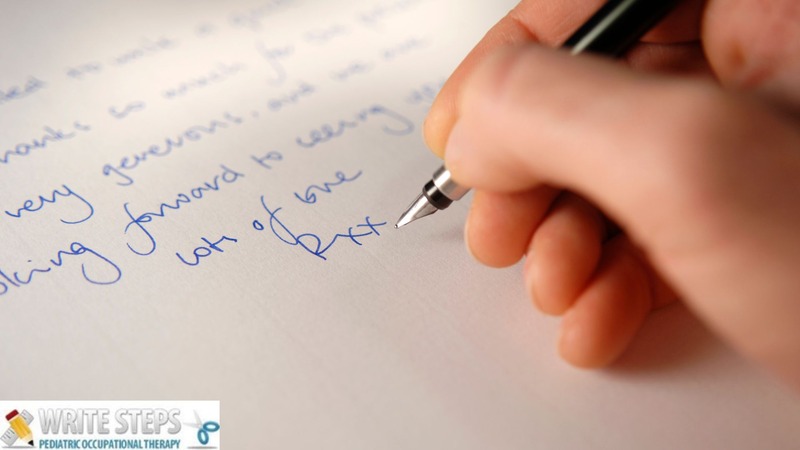 to write a
hanks so much for
very generous, and we are
oking forward to seeing
lots of love
Rxx
WRITE STEPS
PEDIATRIC OCCUPATIONAL THERAPY